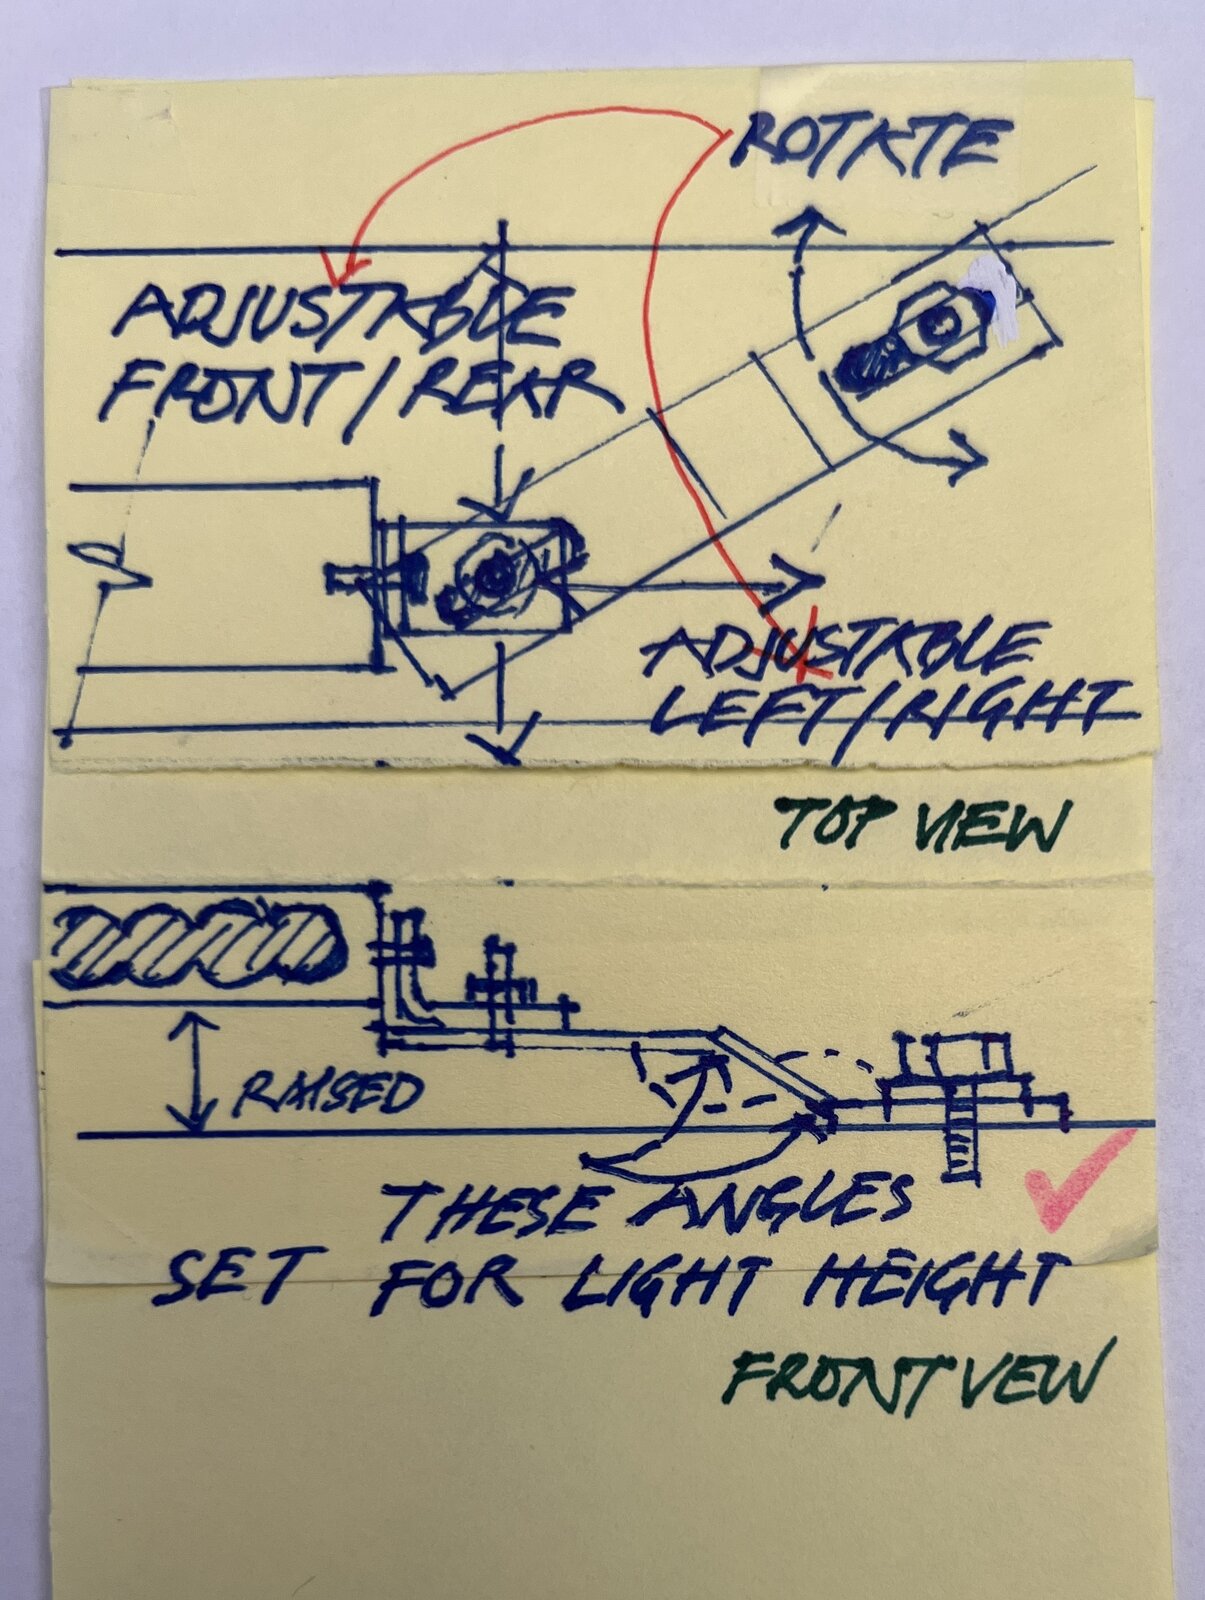 ROTATE
ADJUSTABLE
FRONT/REAR
ADJUSTABLE
LEFT/RIGHT
TOP VIEW
RAISED
THESE ANGLES
SET FOR LIGHT HEIGHT
FRONT VEW